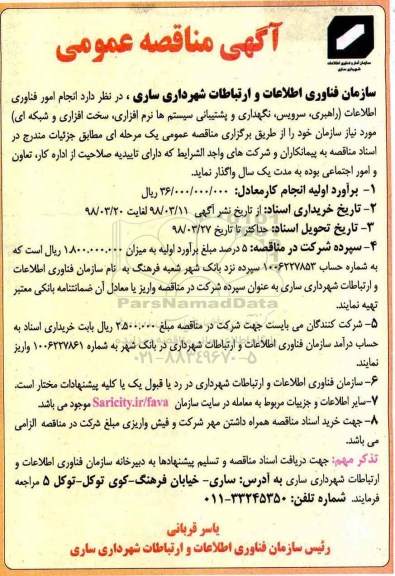 آگهی مناقصه عمومی
سازمان آمار و فناوری اطلاعات
شهرداری ساری
سازمان فناوری اطلاعات و ارتباطات شهرداری ساری ، در نظر دارد انجام امور فناوری
اطلاعات (راهبری، سرویس، نگهداری و پشتیبانی سیستم ها نرم افزاری، سخت افزاری و شبکه ای)
مورد نیاز سازمان خود را از طریق برگزاری مناقصه عمومی یک مرحله ای مطابق جزئیات مندرج در
اسناد مناقصه به پیمانکاران و شرکت های واجد الشرایط که دارای تاییدیه صلاحیت از اداره کار، تعاون
و امور اجتماعی بوده به مدت یک سال واگذار نماید.
۱- برآورد اولیه انجام کارمعادل: ۳۶/۰۰۰/۰۰۰/۰۰۰ ریال
۲- تاریخ خریداری اسناد: از تاریخ نشر آگهی ۹۸/۰۳/۱۱ لغایت ۹۸/۰۳/۲۰
۳- تاریخ تحویل اسناد: حداکثر تا تاریخ ۹۸/۰۳/۲۷
۴- سپرده شرکت در مناقصه: ۵ درصد مبلغ برآورد اولیه به میزان ۱.۸۰۰.۰۰۰.۰۰۰ ریال است که
به شماره حساب ۱۰۰۶۲۲۷۸۵۳ سپرده نزد بانک شهر شعبه فرهنگ به نام سازمان فناوری اطلاعات
و ارتباطات شهرداری ساری به عنوان سپرده شرکت در مناقصه واریز یا معادل آن ضمانتنامه بانکی معتبر
تهیه نمایند.
ParsNamadData
۵- شرکت کنندگان می بایست جهت شرکت در مناقصه مبلغ ۲.۵۰۰.۰۰۰ ریال بابت خریداری اسناد به
حساب درآمد سازمان فناوری اطلاعات و ارتباطات شهرداری در بانک شهر به شماره ۱۰۰۶۲۲۷۸۶۱ واریز
نمایند.
۰۲۱-۸۸۳۴۹۶۷۰-۵
۶- سازمان فناوری اطلاعات و ارتباطات شهرداری در رد یا قبول یک یا کلیه پیشنهادات مختار است.
۷-سایر اطلاعات و جزییات مربوط به معامله در سایت سازمان Saricity.ir/fava موجود می باشد.
۸-جهت خرید اسناد مناقصه همراه داشتن مهر شرکت و فیش واریزی مبلغ شرکت در مناقصه الزامی
می باشد.
تذکر مهم: جهت دریافت اسناد مناقصه و تسلیم پیشنهادها به دبیرخانه سازمان فناوری اطلاعات و
ارتباطات شهرداری ساری به آدرس: ساری- خیابان فرهنگ-کوی توکل-توکل ۵ مراجعه
فرمایند. شماره تلفن: ۳۳۲۴۵۳۵۰-۰۱۱
یاسر قربانی
رئیس سازمان فناوری اطلاعات و ارتباطات شهرداری ساری